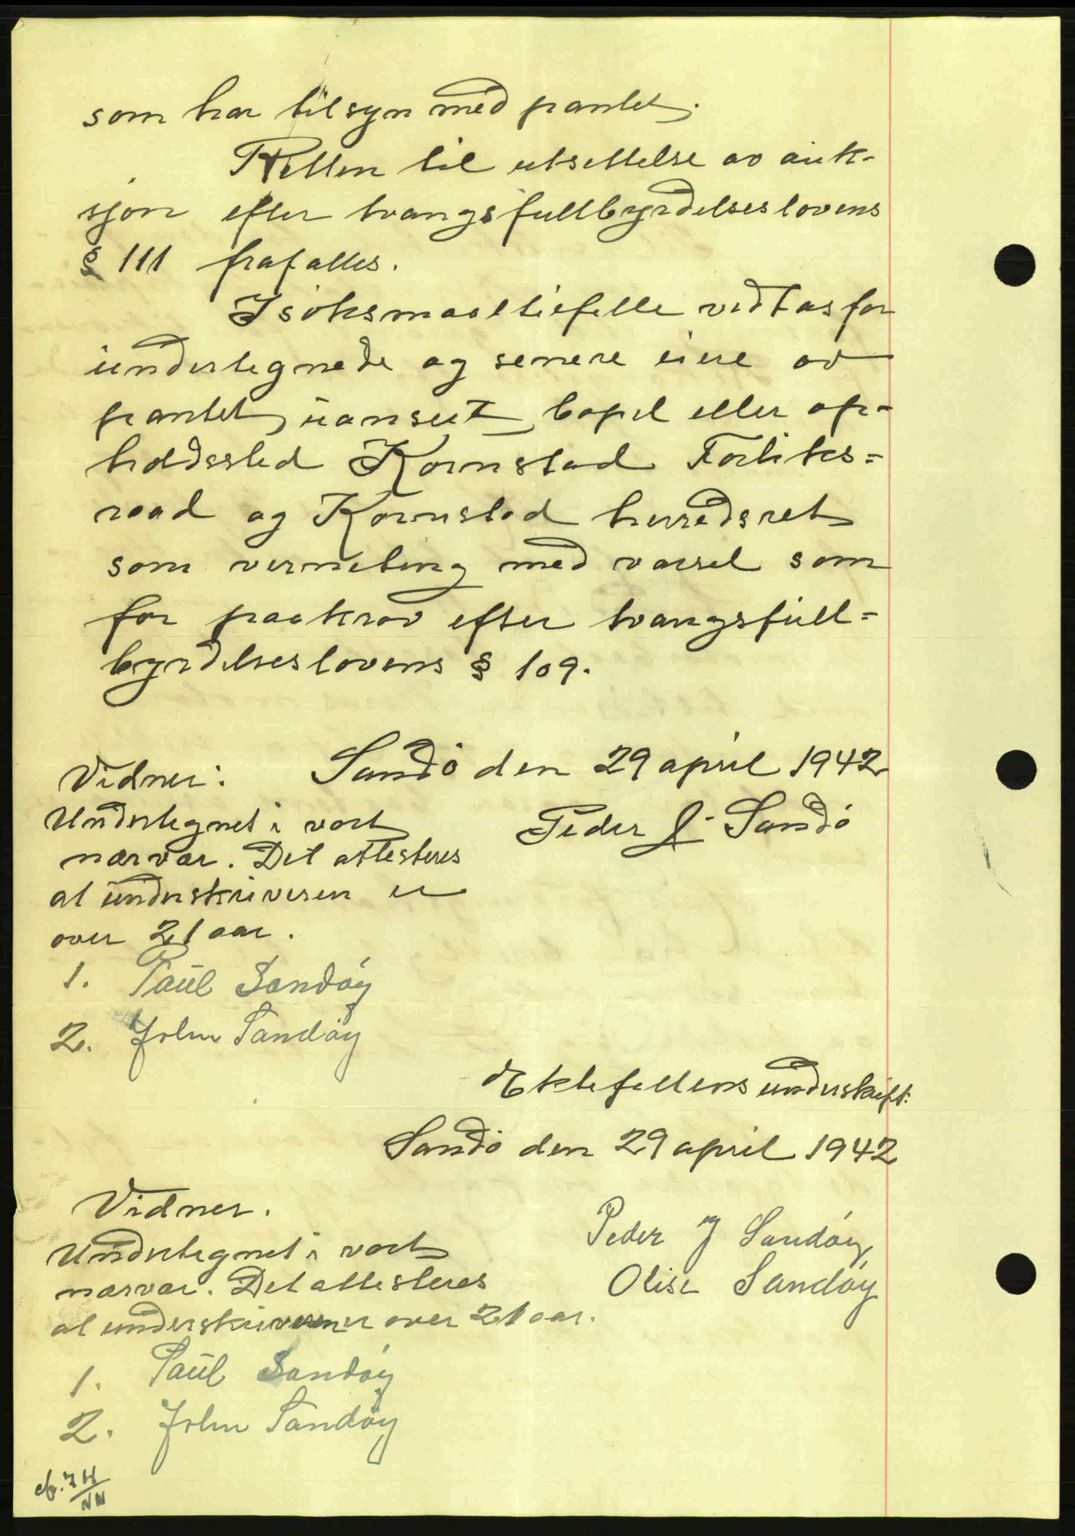 som har tilsyn med pantet.
Retten til utsettelse av auk-
sjon efter tvangsfullbyrdelseslovens
§ 111 frafalles.
I søksmaaltilfelle vedtas for
undertegnede og senere eiere av
pantet uanseet bopel eller op-
holdssted Kornstad Forliks=
raad og Kornstad herredsret
som verneting med varsel som
for paakrav efter tvangsfull=
byrdelseslovens § 109.
Sandö den 29 april 1942
Vidner:
Peder J. Sandö
Undertegnet i vort
nærvær. Det attesteres
at underskriveren er
over 21 aar.
1. Paul Sandøy
2. John Sandøy
Ektefellens underskrift:
Sandö den 29 april 1942
Vidner.
Peder J Sandøy
Undertegnet i vort
Olise Sandøy
nærvær. Det attesteres
at underskriverne er over 21 aar.
1. Paul Sandøy
2. John Sandøy